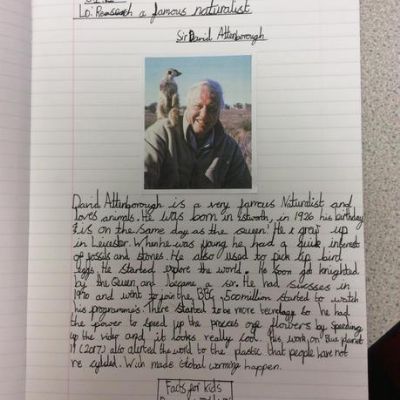 Lo: Research a famous naturalist
Sir David Attenborough
David Attenborough is a very famous Naturalist and
loves animals. He was born in Isleworth, in 1926 his birthday
is on the same day as the Queen! He grew up
in Leicester. When he was young he had a quick interest
of fossils and stones. He also used to pick up bird
eggs. He started explore the world. He soon got knighted
by the Queen and became a sir. He had success in
and went to join the BBC. 500 million started to watch
his programme's. There started to be more so he had
the power to speed up the process of flowers by speeding
up the video and it looks really cool. His work on Blue planet
(2017) also alerted the word to the plastic that people have not
re cycled. Wich made Global warming happen.
Facts for kids